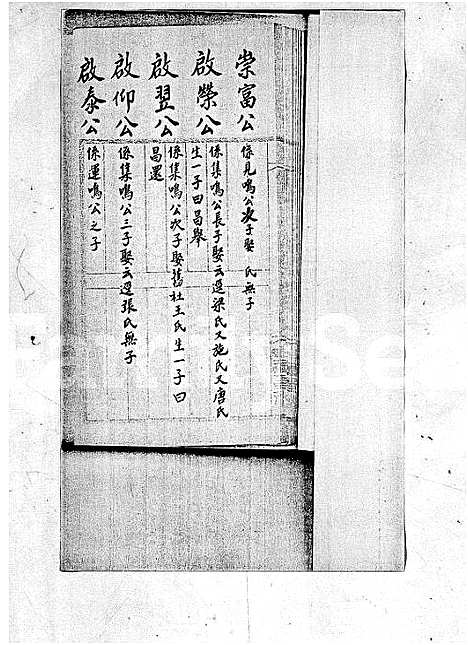 崇富公
係見鳴公次子娶 氏無子
啟榮公
係集鳴公長子娶云選梁氏又施氏又唐氏
生一子曰昌舉
啟翌公
係集鳴公次子娶舊社王氏生一子曰
昌還
啟仰公
係集鳴公三子娶云選張氏無子
啟泰公
係運鳴公之子